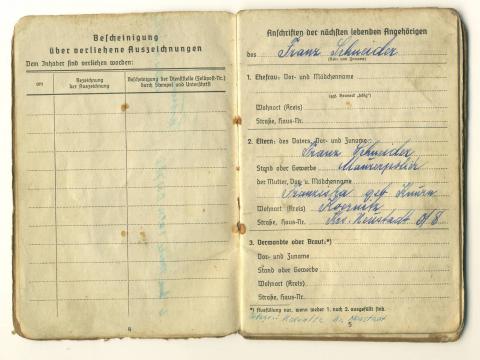 Bescheinigung
über verliehene Auszeichnungen
Dem Inhaber sind verliehen worden:
am
Bezeichnung
der Auszeichnung
Bescheinigung der Dienststelle (Feldpost-Nr.)
durch Stempel und Unterschrift
4
Anschriften der nächsten lebenden Angehörigen
des Franz Schneider
(Vor- und Zuname)
1. Ehefrau: Vor- und Mädchenname
(ggf. Vermerk „ledig“)
Wohnort (Kreis)
Straße, Haus-Nr.
2. Eltern: des Vaters, Vor- und Zuname
Franz Schneider
Stand oder Gewerbe Maurerpolier
der Mutter, Vor- u. Mädchenname
Franziska geb.
Wohnort (Kreis)
Straße, Haus-Nr. Krs. Neustadt O/S
3. Verwandte oder Braut:*)
Vor- und Zuname
Stand oder Gewerbe
Wohnort (Kreis)
Straße, Haus-Nr.
*) Ausfüllung nur, wenn weder 1. noch 2. ausgefüllt sind.
Neustadt
5